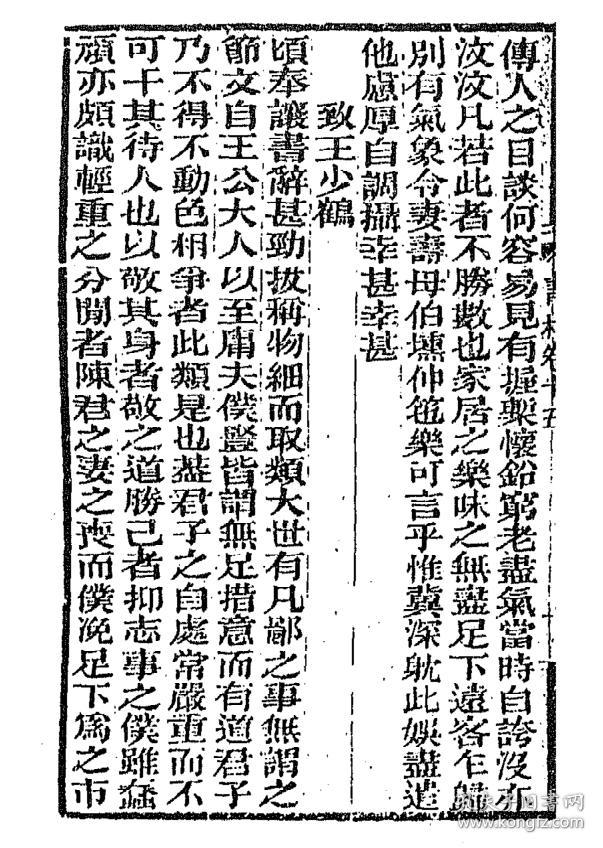 傳人之目談何容易見有握槧懷鉛窮老盡氣當時自誇沒亦
汶汶凡若此者不勝數也家居之樂味之無盡足下遠客乍歸
別有氣象令妻壽母伯壎仲篪樂可言乎惟冀深耽此娛盡遣
他慮厚自調攝幸甚幸甚
致王少鶴
頃奉讓書辭甚勁拔稱物細而取類大世有凡鄙之事無謂之
節文自王公大人以至庸夫僕豎皆謂無足措意而有道君子
乃不得不動色相爭者此類是也蓋君子之自處常嚴重而不
可干其待人也以敬其身者敬之道勝己者抑志事之僕雖蠢
頑亦頗識輕重之分閒者陳君之妻之喪而僕浼足下為之市
卷十五
www.kongfz.com